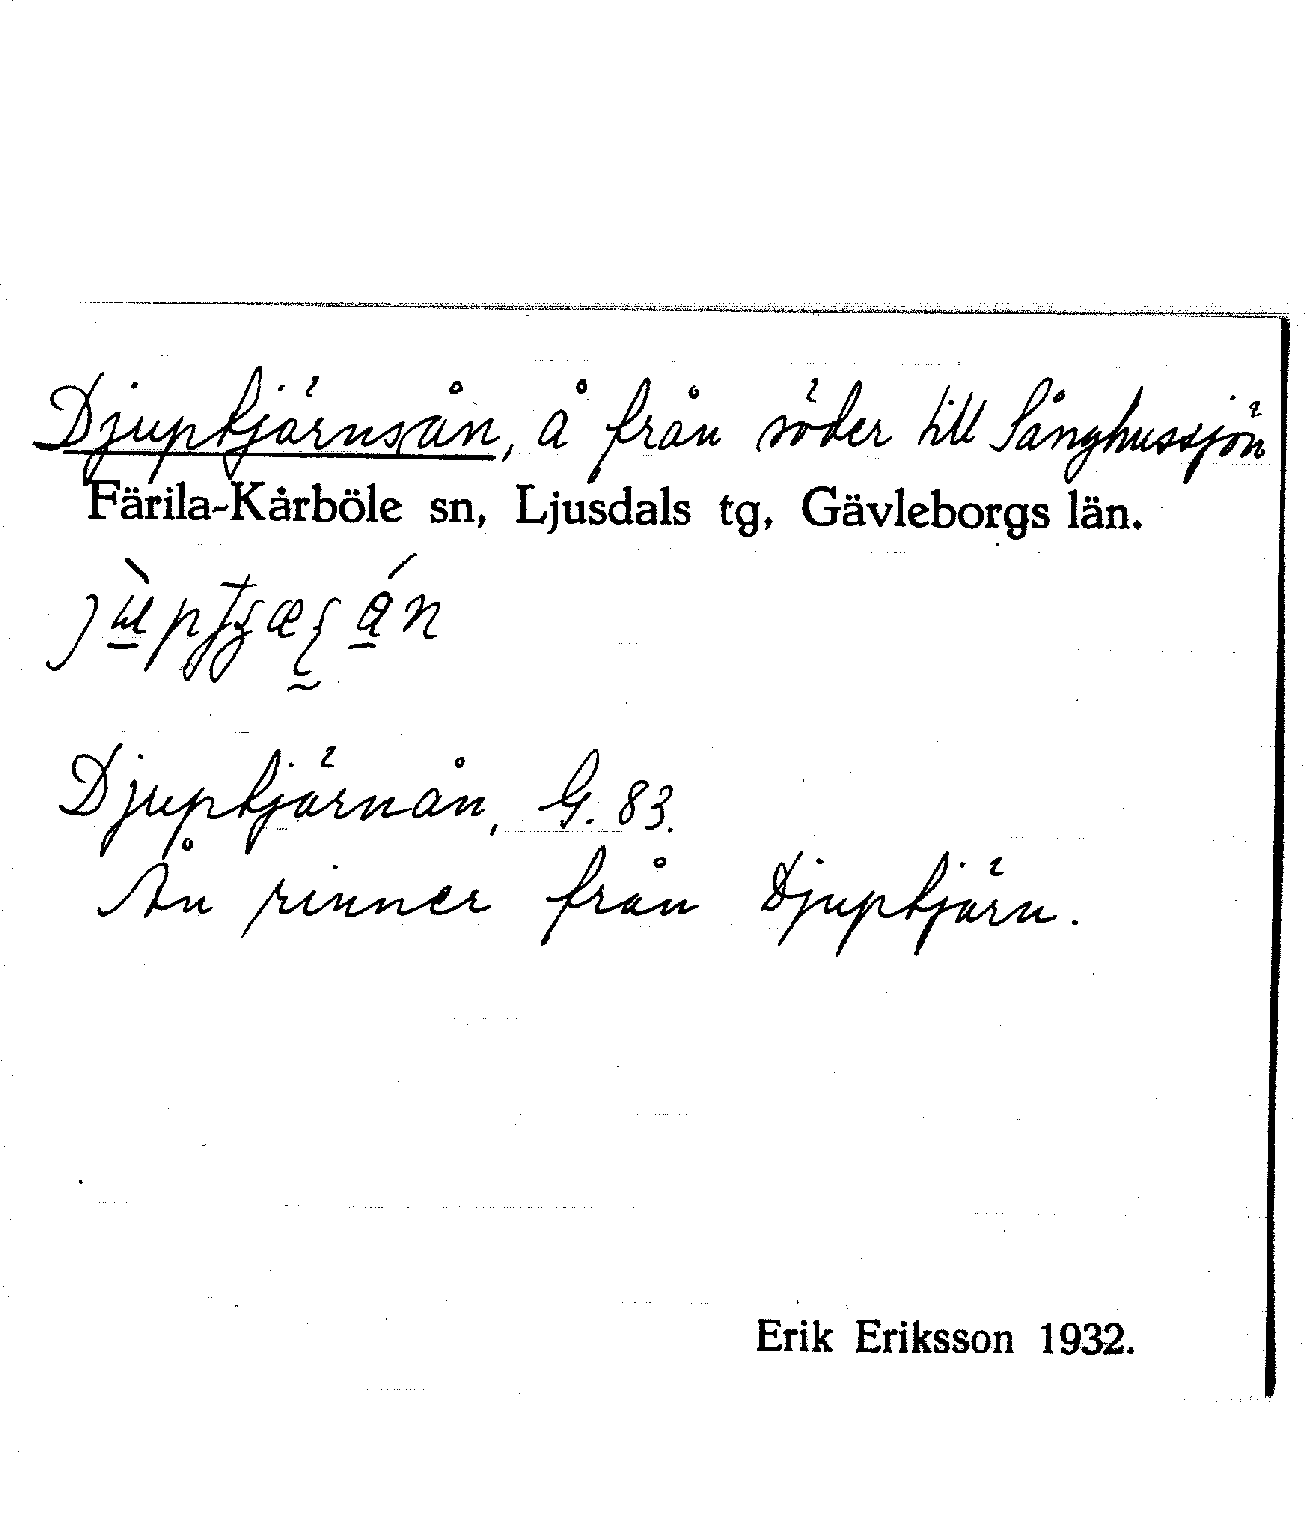 Djuptjärnsån, å från söder till Sånghussjön
Färila-Kårböle sn, Ljusdals tg, Gävleborgs län.
Djuptjärnån, G. 83.
Ån rinner från Djuptjärn.
Erik Eriksson 1932.